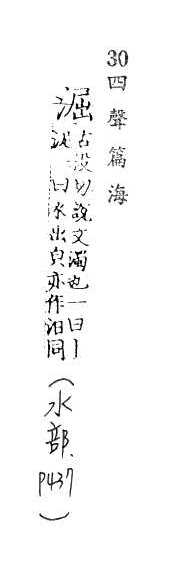 30 四聲篇海
淈
古没切說文濁也一曰丨
泥一曰水出皃亦作汩同
(水部、P437)